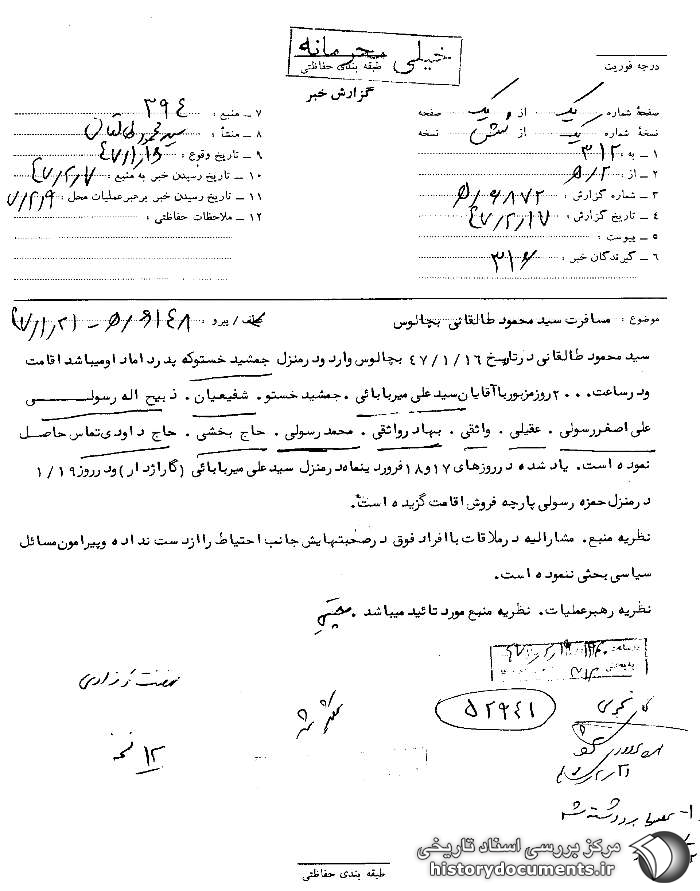 خیلی محرمانه
طبقه بندی حفاظتی
درجه فوریت
گزارش خبر
صفحهٔ شماره یک از یک صفحه
نسخهٔ شماره یک از شش نسخه
۱ ـ به : ۳۱۲
۲ ـ از : ۵/۲
۳ ـ شماره گزارش : ۵/۶۸۷۲
۴ ـ تاریخ گزارش : ۴۷/۲/۱۷
۵ ـ پیوست :
۶ ـ گیرندگان خبر : ۳۱۶
۷ ـ منبع : ۳۹۴
۸ ـ منشأ : سید محمود طالقانی
۹ ـ تاریخ وقوع : ۴۷/۱/۱۶
۱۰ ـ تاریخ رسیدن خبر به منبع : ۴۷/۲/۷
۱۱ ـ تاریخ رسیدن خبر برهبر عملیات محل : ۷/۲/۹
۱۲ ـ ملاحظات حفاظتی :
موضوع : مسافرت سید محمود طالقانی بچالوس عطف/ پیرو : ۵/۶۱۴۸ - ۴۷/۱/۲۱
سید محمود طالقانی در تاریخ ۴۷/۱/۱۶ بچالوس وارد و در منزل جمشید خستو که پدر داماد او میباشد اقامت
و در ساعت ۲۰۰۰ روز مزبور با آقایان سید علی میربابائی . جمشید خستو . شفیعیان . ذبیح اله رسولی
علی اصغر رسولی . عقیلی . واثقی . بهادر واثقی . محمد رسولی . حاج بخشی . حاج داودی تماس حاصل
نموده است . یاد شده در روزهای ۱۷ و ۱۸ فروردینماه در منزل سید علی میربابائی (گاراژدار) و در روز ۱/۱۹
در منزل حمزه رسولی پارچه فروش اقامت گزیده است .
نظریه منبع . مشارالیه در ملاقات با افراد فوق در صحبتهایش جانب احتیاط را از دست نداده و پیرامون مسائل
سیاسی بحثی ننموده است .
نظریه رهبر عملیات . نظریه منبع مورد تائید میباشد .
نهضت آزادی
۵۲۹۴۱
۱۲ نسخه
طبقه بندی حفاظتی
مرکز بررسی اسناد تاریخی
historydocuments.ir